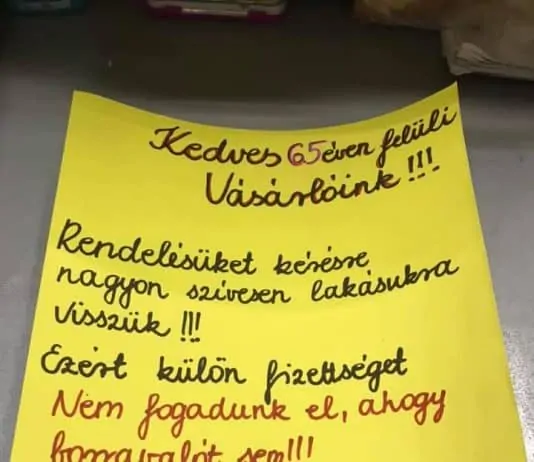 Kedves 65 éven felüli
Vásárlóink !!!
Rendelésüket kérésre
nagyon szívesen lakásukra
visszük !!!
Ezért külön fizettséget
Nem fogadunk el, ahogy
borravalót sem!!!